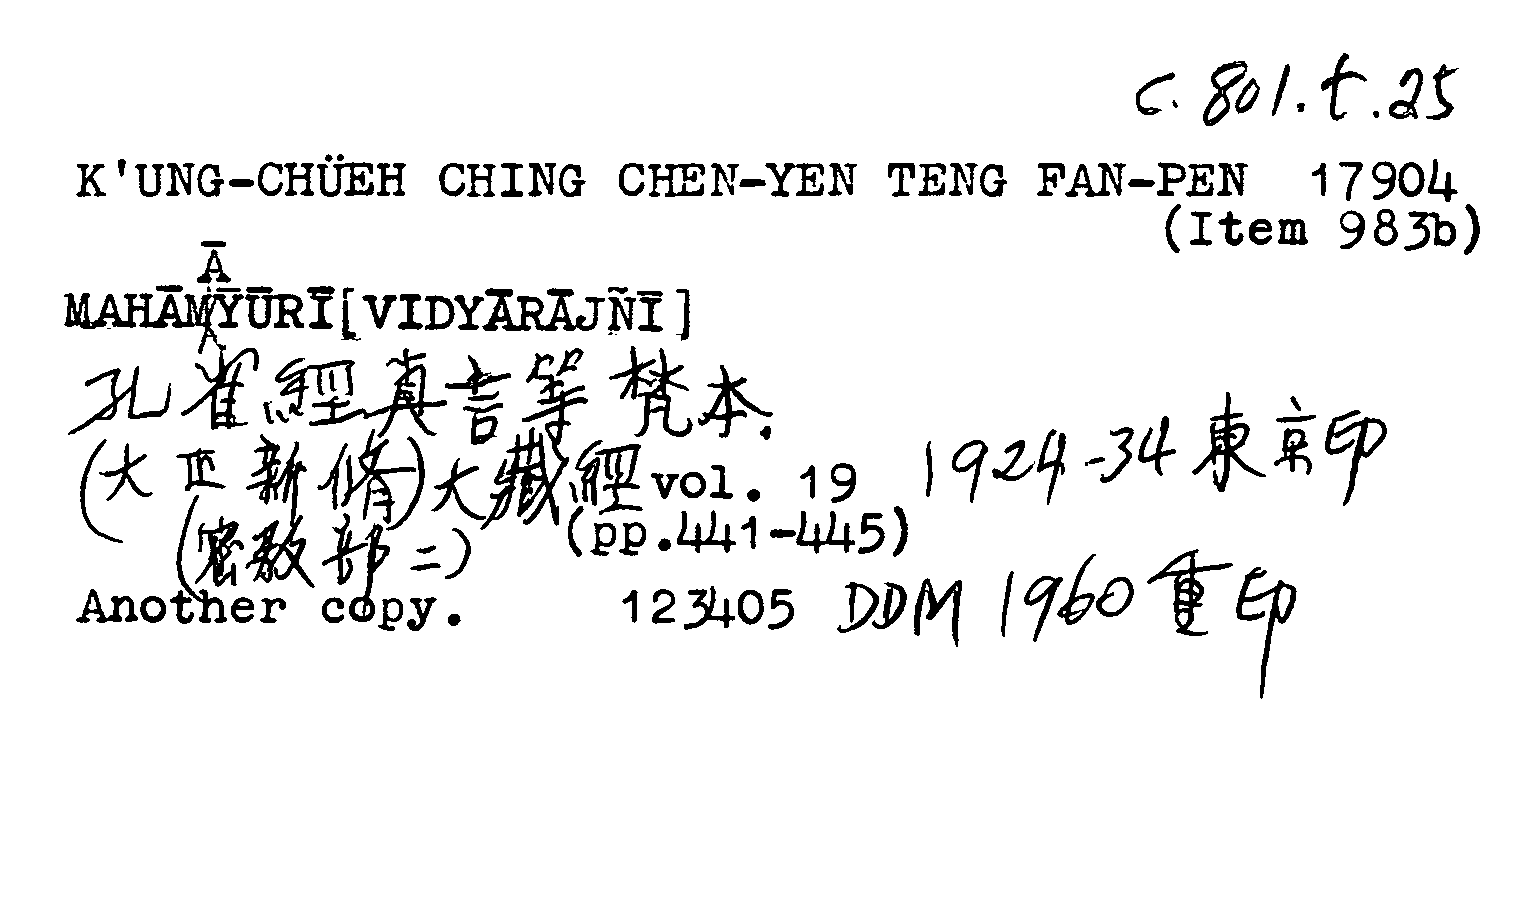 C. 801.t.25
K'UNG-CHÜEH CHING CHEN-YEN TENG FAN-PEN 17904
(Item 983b)
Ā
MAHĀMYŪRĪ[VIDYĀRĀJÑĪ]
孔雀經真言等梵本.
(大正新脩)大藏經 vol. 19 1924-34 東京印
(密教部二) (pp.441-445)
Another copy. 123405 DDM 1960 重印